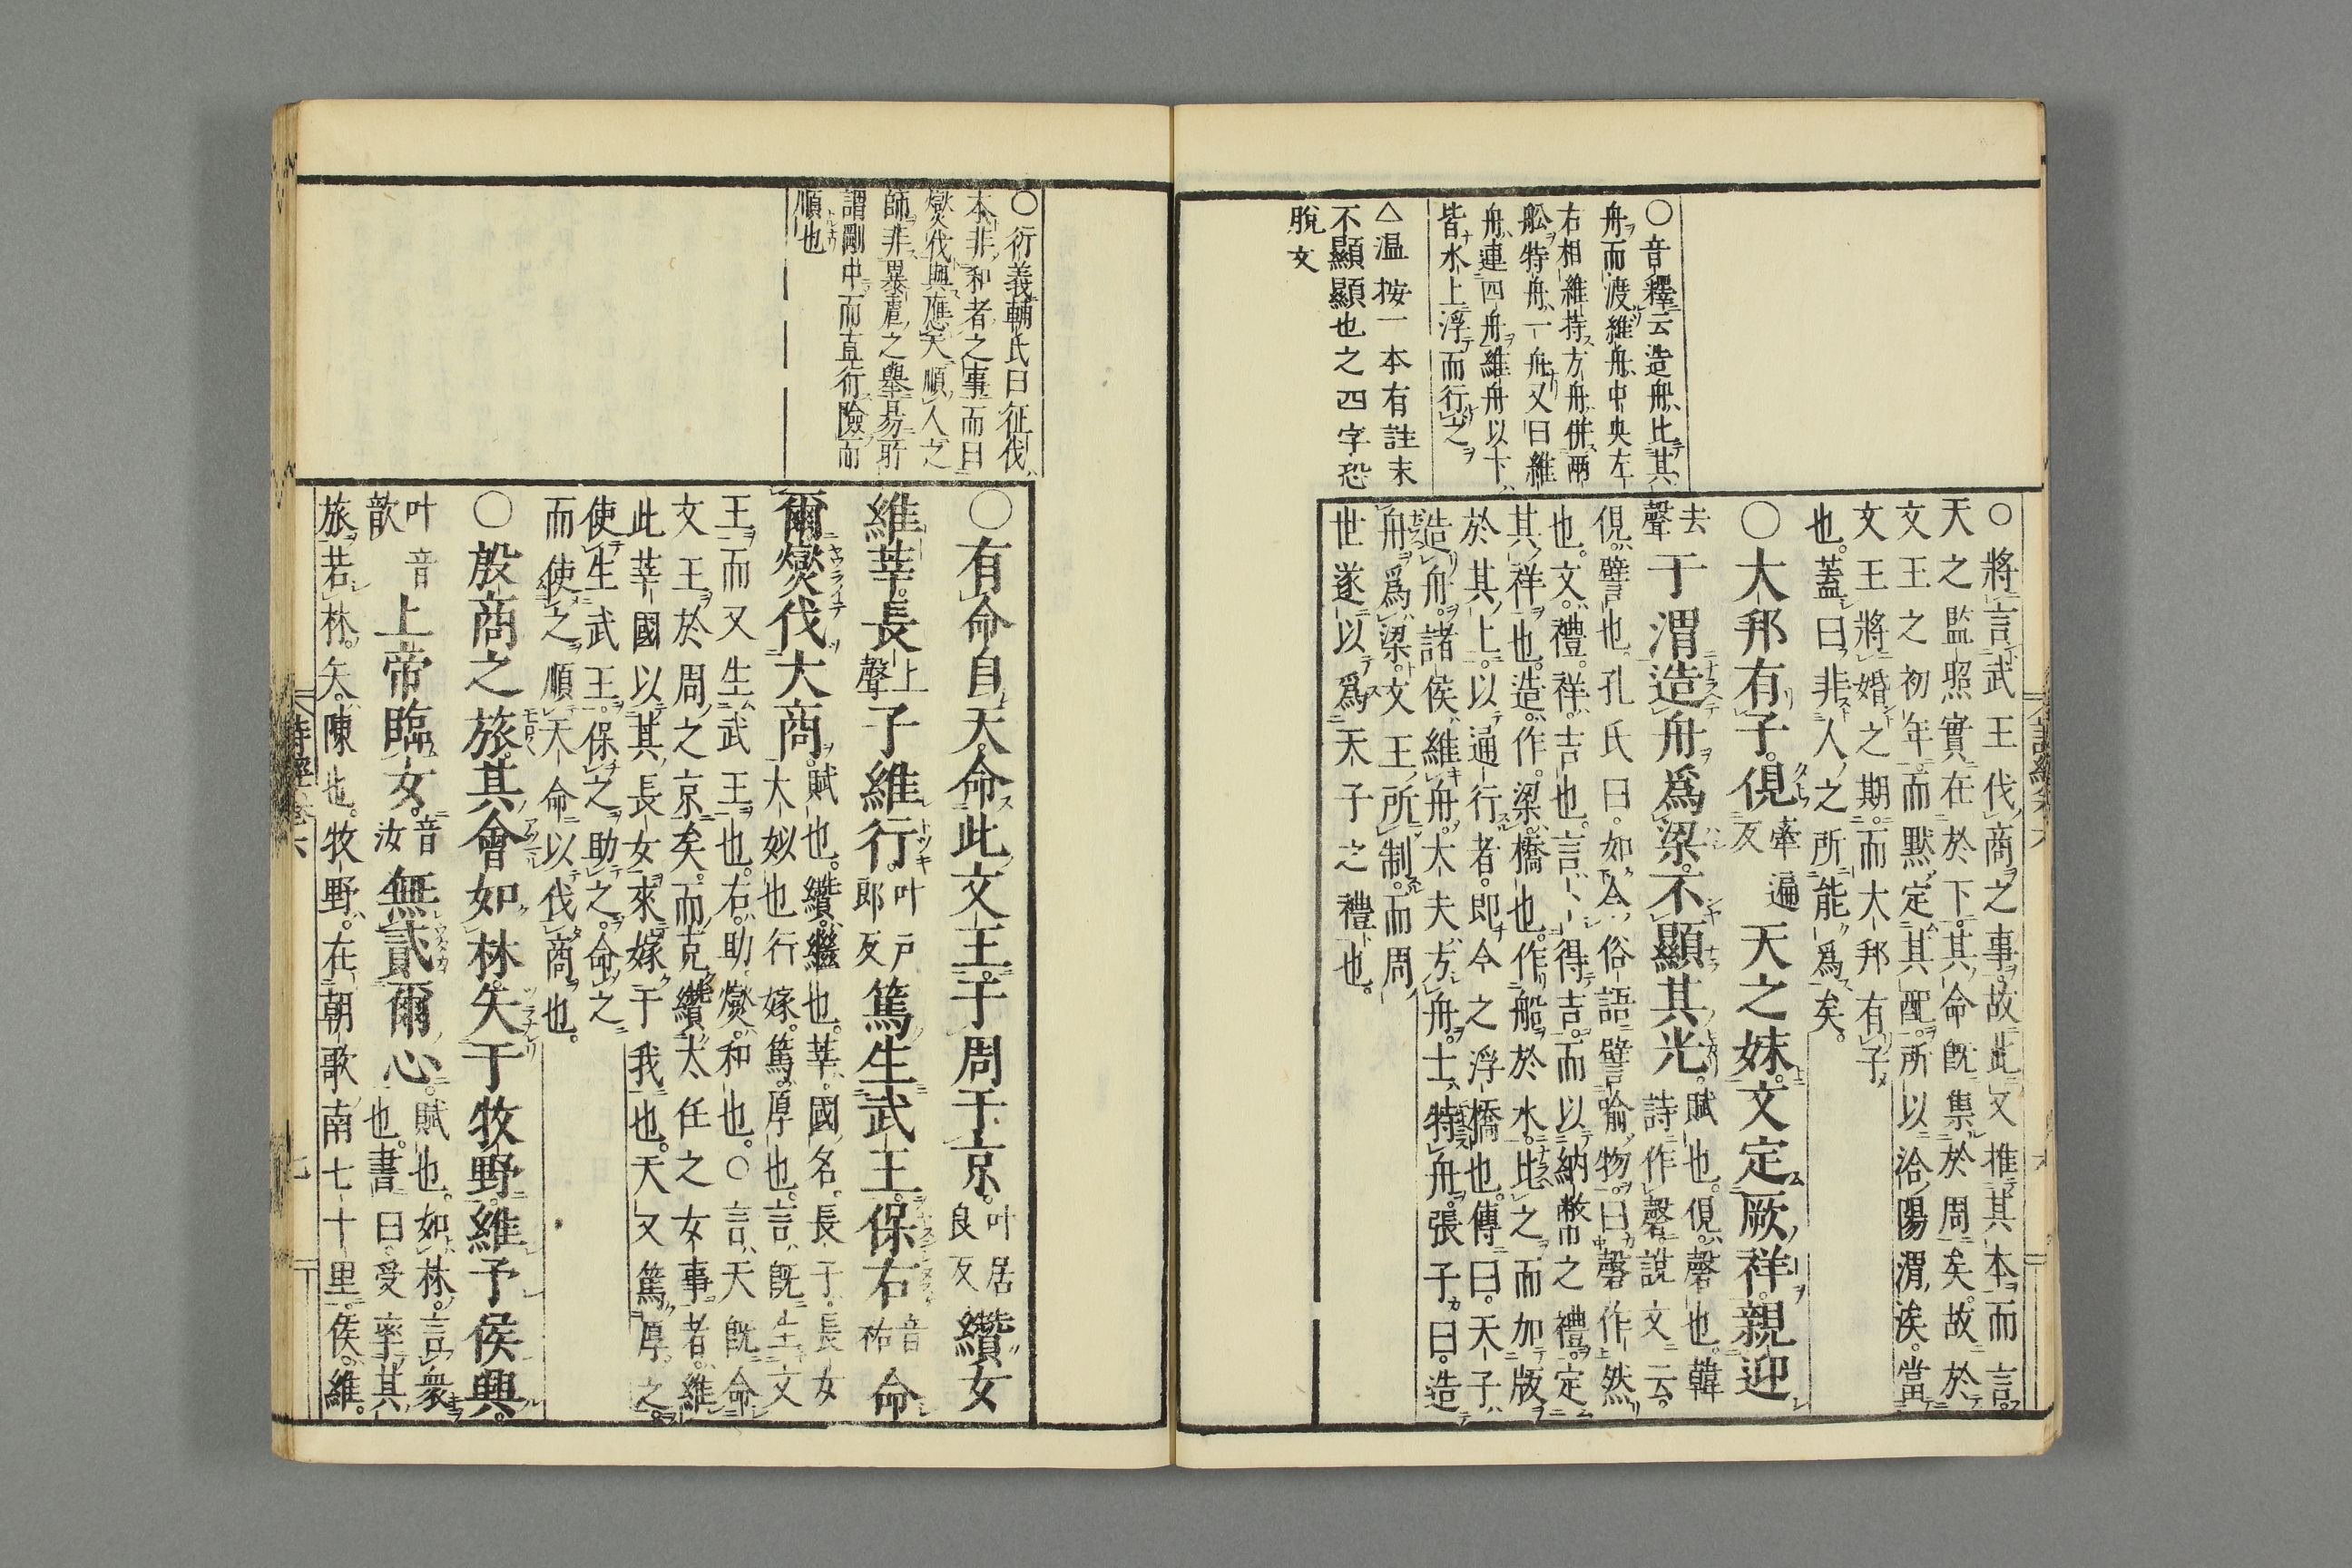 ○音釋云造舟比其
舟而渡維舟中央左
右相維持方舟併兩
舩特舟一舟又曰維
舟連四舟維舟以下
皆水上浮而行之
△温按一本有註末
不顯顯也之四字恐
脫文
○將言武王伐商之事故此又推其本而言
天之監照實在於下其命旣集於周矣故於
文王之初年而默定其配所以洽陽渭涘當
文王將婚之期而大邦有子
也蓋曰非人之所能爲矣
○大邦有子俔牽遍反天之妹文定厥祥親迎
去聲于渭造舟爲梁不顯其光賦也俔磬也韓
詩作磬說文云
俔譬也孔氏曰如今俗語譬喻物曰磬作然
也文禮祥吉也言卜得吉而以納幣之禮定
其祥也造作梁橋也作船於水比之而加版
於其上以通行者即今之浮橋也傳曰天子
造舟諸侯維舟大夫方舟士特舟張子曰造
舟爲梁文王所制而周
世遂以爲天子之禮也
○衍義輔氏曰征伐
本非和者之事而曰
燮伐與應天順人之
師非暴亂之舉易所
謂剛中而直行險而
順也
○有命自天命此文王于周于京叶居良反纘女
維莘長上聲子維行叶户郎反篤生武王保右音祐命
爾燮伐大商賦也纘繼也莘國名長子長女
大姒也行嫁篤厚也言旣生文
王而又生武王也右助燮和也○言天旣命
文王於周之京矣而克纘大任之女事者維
此莘國以其長女來嫁于我也天又篤厚之
使生武王保之助之命之
而使之順天命以伐商也
○殷商之旅其會如林矢于牧野維予侯興
叶音歆上帝臨女音汝無貳爾心賦也如林言衆
也書曰受率其
旅若林矢陳也牧野在朝歌南七十里侯維
詩經卷六
七